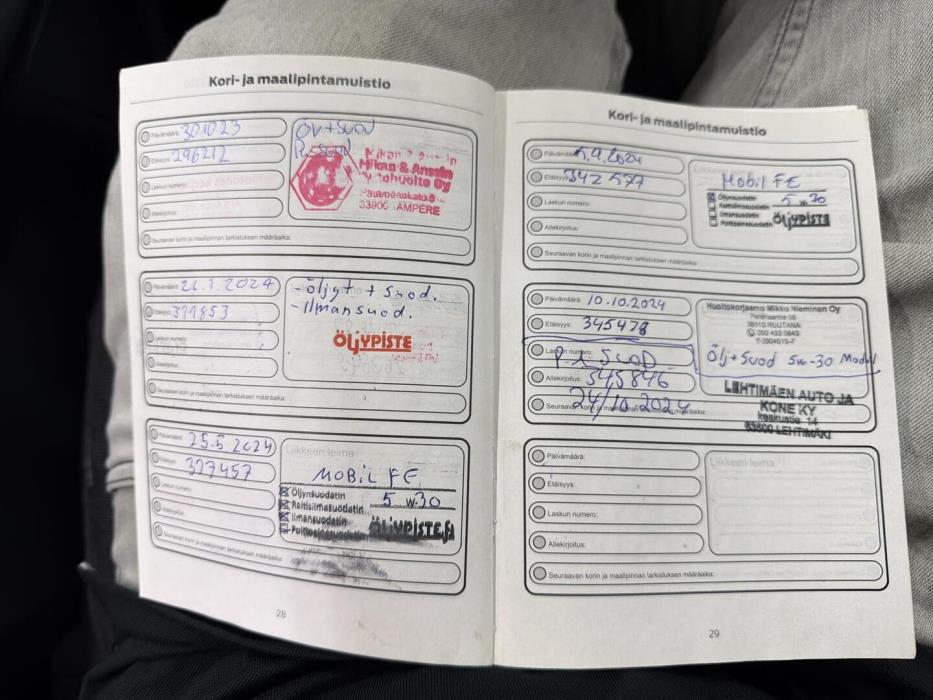 Kori- ja maalipintamuistio
Päivämäärä: 301023
Etäisyys: 296212
Laskun numero:
Allekirjoitus:
Seuraavan korin ja maalipinnan tarkistuksen määräaika:
Öljy+Suod
Mikan & Anssin
Autohuolto Oy
33900 TAMPERE
Päivämäärä: 26.1.2024
Etäisyys: 311853
Laskun numero:
Allekirjoitus:
Seuraavan korin ja maalipinnan tarkistuksen määräaika:
- öljyt + suod.
- Ilmansuod.
ÖLJYPISTE
Päivämäärä: 25.5 2024
Etäisyys: 327457
Laskun numero:
Allekirjoitus:
Seuraavan korin ja maalipinnan tarkistuksen määräaika:
Liikkeen leima
MOBIL FE
Öljynsuodatin 5 w.30
Raitisilmasuodatin
Ilmansuodatin
ÖLJYPISTE.fi
28
Kori- ja maalipintamuistio
Päivämäärä: 5.9.2024
Etäisyys: 342577
Laskun numero:
Allekirjoitus:
Seuraavan korin ja maalipinnan tarkistuksen määräaika:
Mobil FE
Öljynsuodatin 5 w 30
Raitisilmasuodatin
Ilmansuodatin
ÖLJYPISTE
Päivämäärä: 10.10.2024
Etäisyys: 345478
Laskun numero:
Allekirjoitus: 345846
24/10.2024
Huoltokorjaamo Mikko Nieminen Oy
36110 RUUTANA
050 433 5643
Y-2904515-7
Öljy+Suod 5w-30 Mobil
LEHTIMÄEN AUTO JA
KONE KY
keskustie 14
63500 LEHTIMÄKI
Päivämäärä:
Etäisyys:
Laskun numero:
Allekirjoitus:
Seuraavan korin ja maalipinnan tarkistuksen määräaika:
Liikkeen leima
29